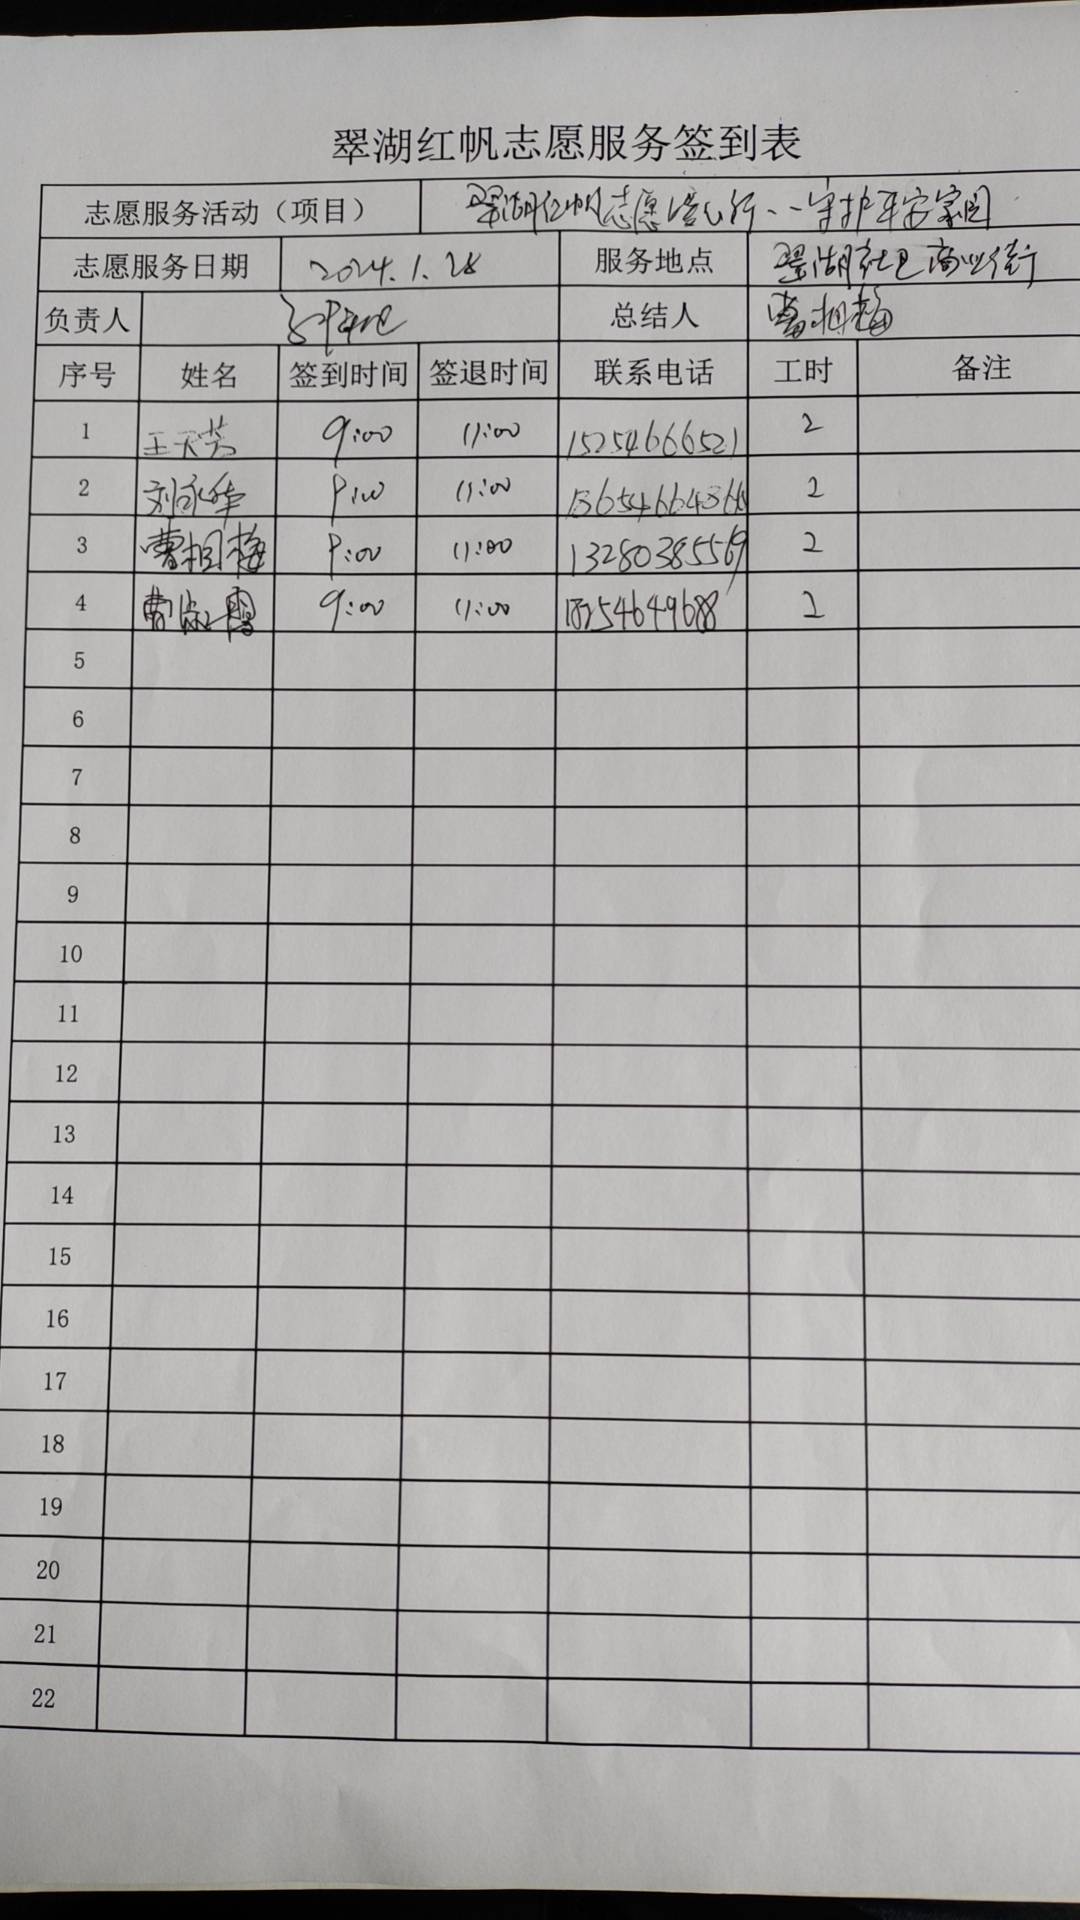 翠湖红帆志愿服务签到表
志愿服务活动（项目） 翠湖红帆志愿行、守护平安家园
志愿服务日期 2024.1.28 服务地点 翠湖社区商业街
负责人 总结人 曹相梅
序号 姓名 签到时间 签退时间 联系电话 工时 备注
1 王天芳 9:00 11:00 15254666521 2
2 刘永华 9:00 11:00 2
3 曹相梅 9:00 11:00 13280385569 2
4 曹淑霞 9:00 11:00 18254649688 2
5
6
7
8
9
10
11
12
13
14
15
16
17
18
19
20
21
22